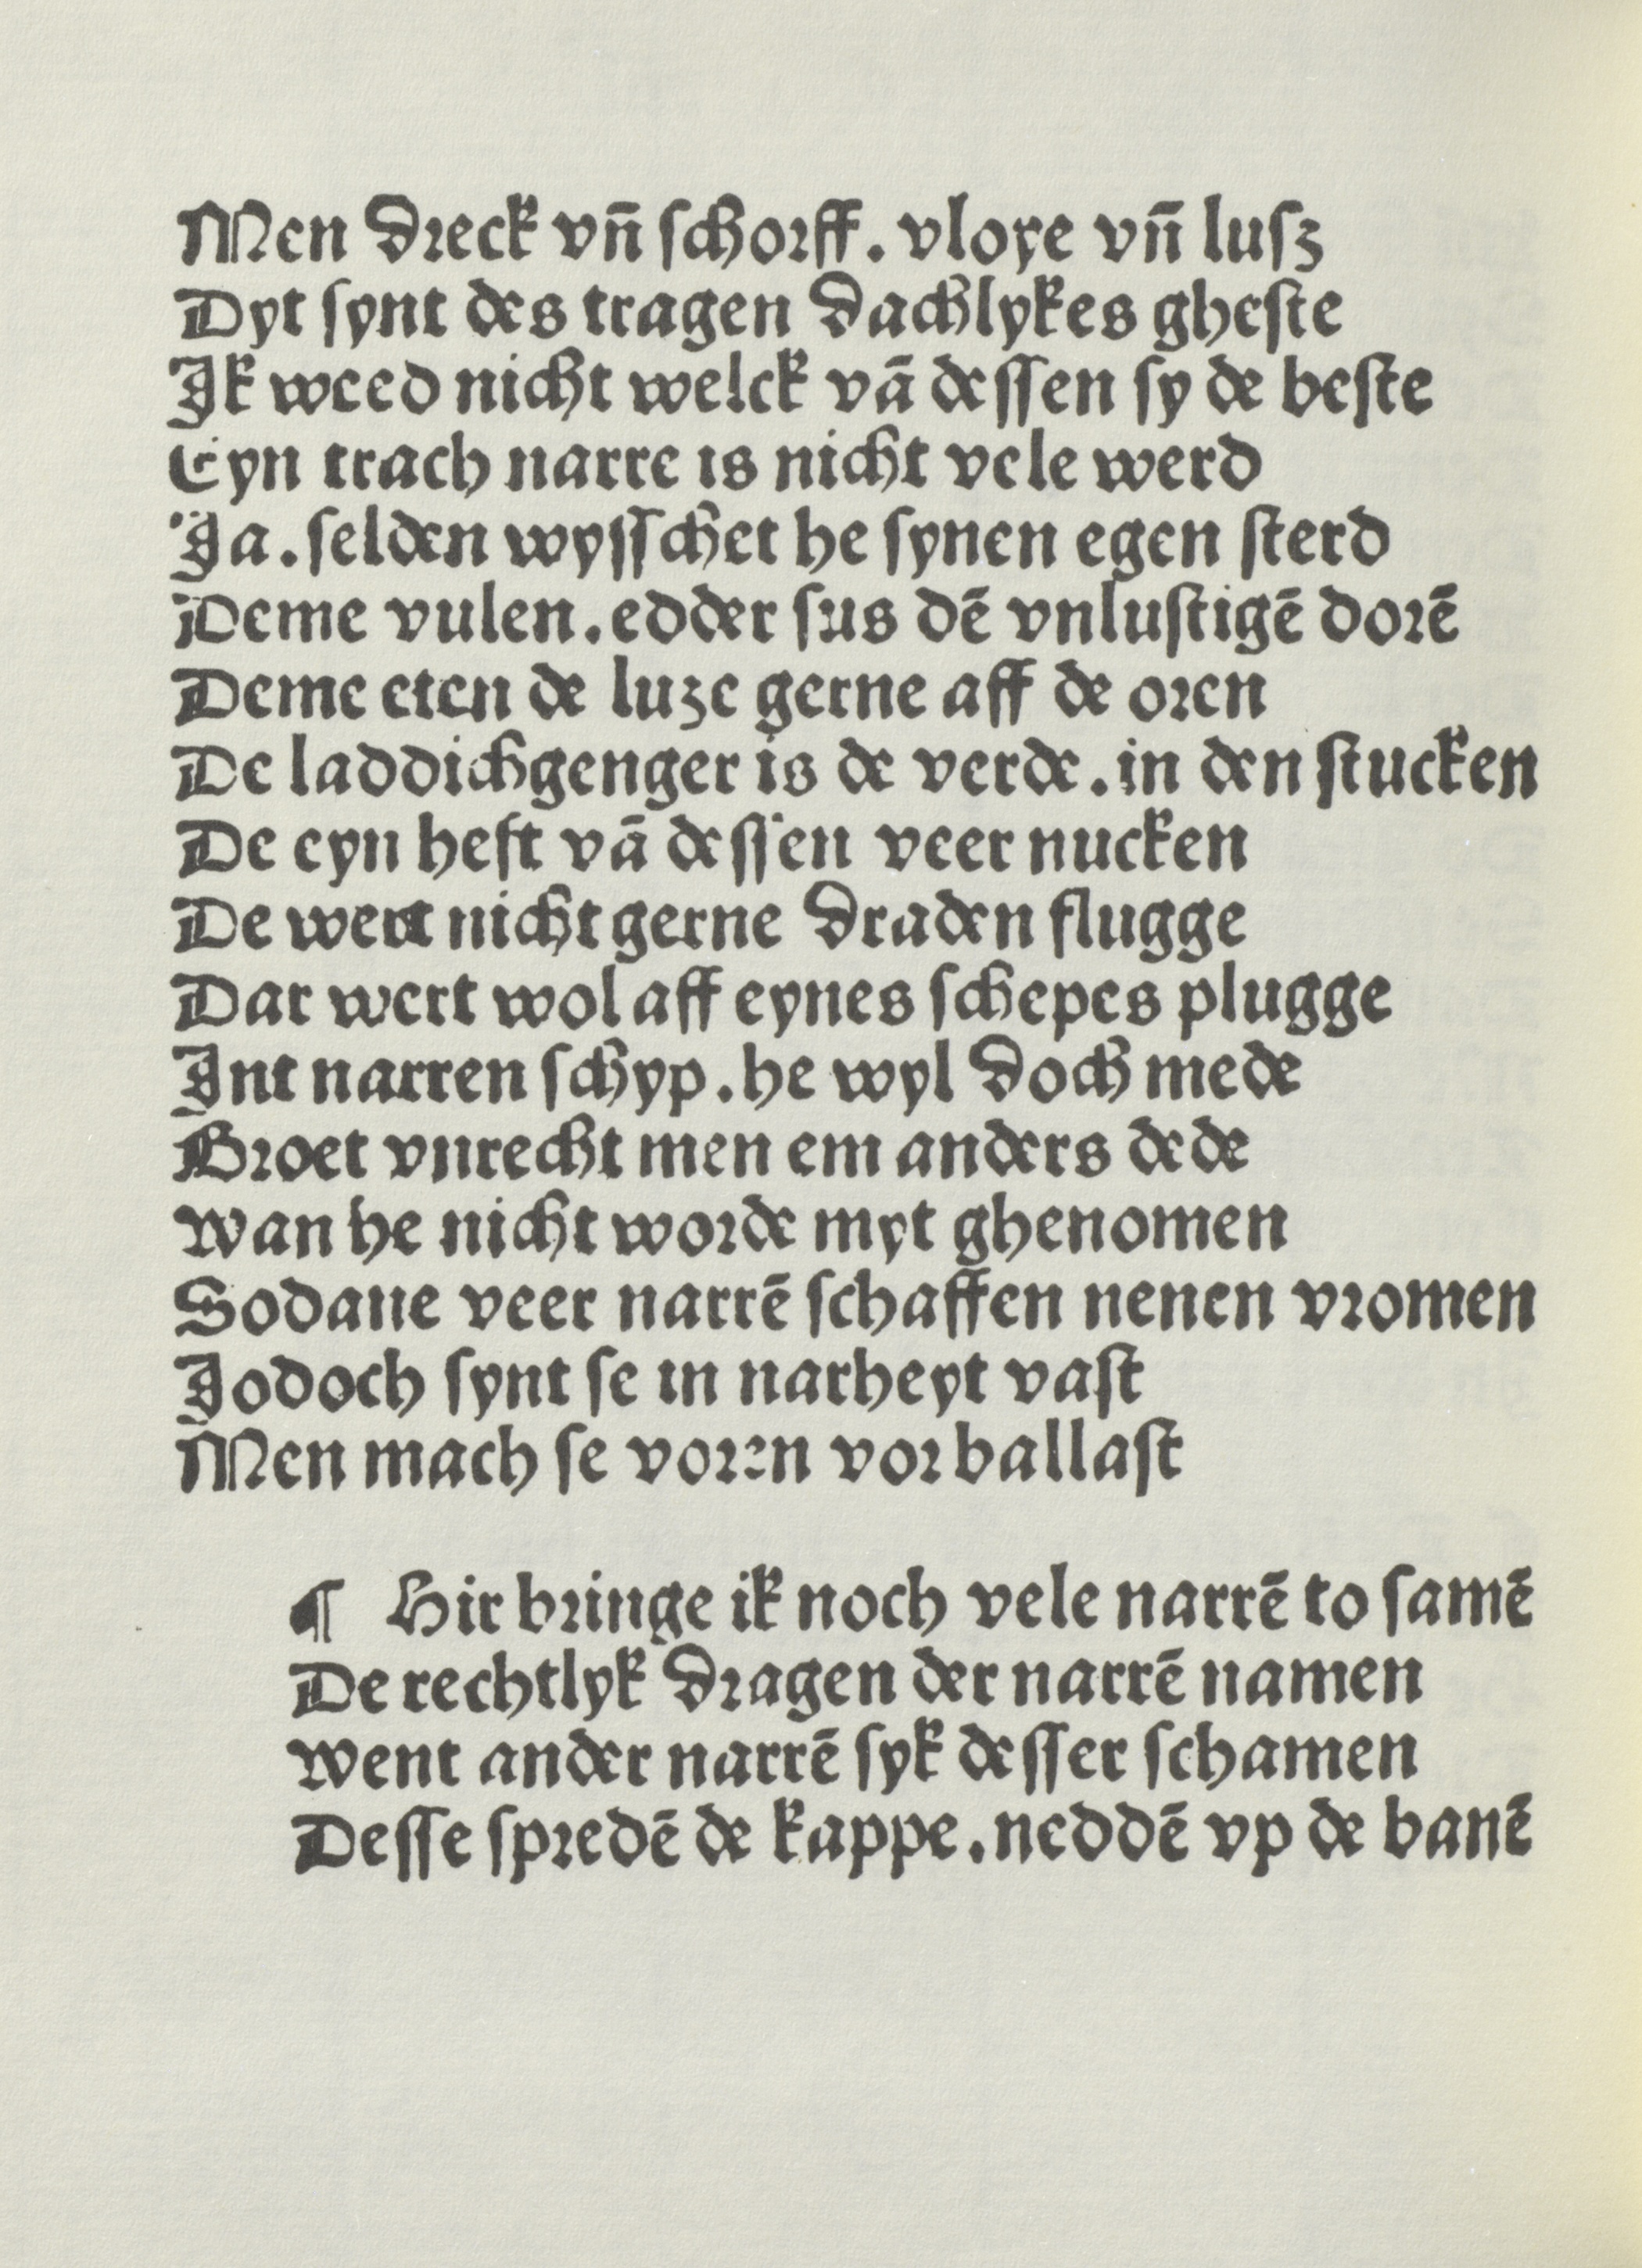 Men dreck vn̄ ſchorff. vloye vn̄ luſz
Dyt ſynt des tragen dachlykes gheſte
Ik weed nicht welck vā deſſen ſy de beſte
Eyn trach narre is nicht vele werd
Ja. ſelden wyſſchet he ſynen egen ſterd
Deme vulen. edder ſus dē vnluſtigē dorē
Deme eten de luze gerne aff de oren
De laddichgenger is de verde. in den ſtucken
De eyn heft vā deſſen veer nucken
De wert nicht gerne draden flugge
Dar wert wol aff eynes ſchepes plugge
Int narren ſchyp. he wyl doch mede
Groet vnrecht men em anders dede
Wan he nicht worde myt ghenomen
Sodane veer narrē ſchaffen nenen vromen
Jodoch ſynt ſe in narheyt vaſt
Men mach ſe voren vor ballaſt
¶ Hir bringe ik noch vele narrē to ſamē
De rechtlyk dragen der narrē namen
Went ander narrē ſyk deſſer ſchamen
Deſſe ſpredē de kappe. neddē vp de banē